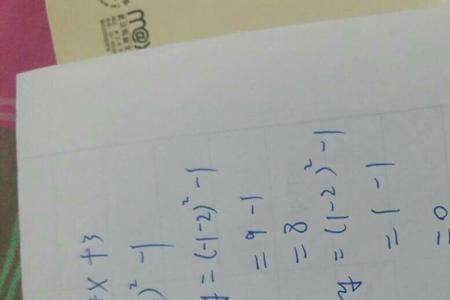 x + 3
)² - 1
y = (-1-2)² - 1
= 9 - 1
= 8
y = (1-2)² - 1
= 1 - 1
= 0
m@x